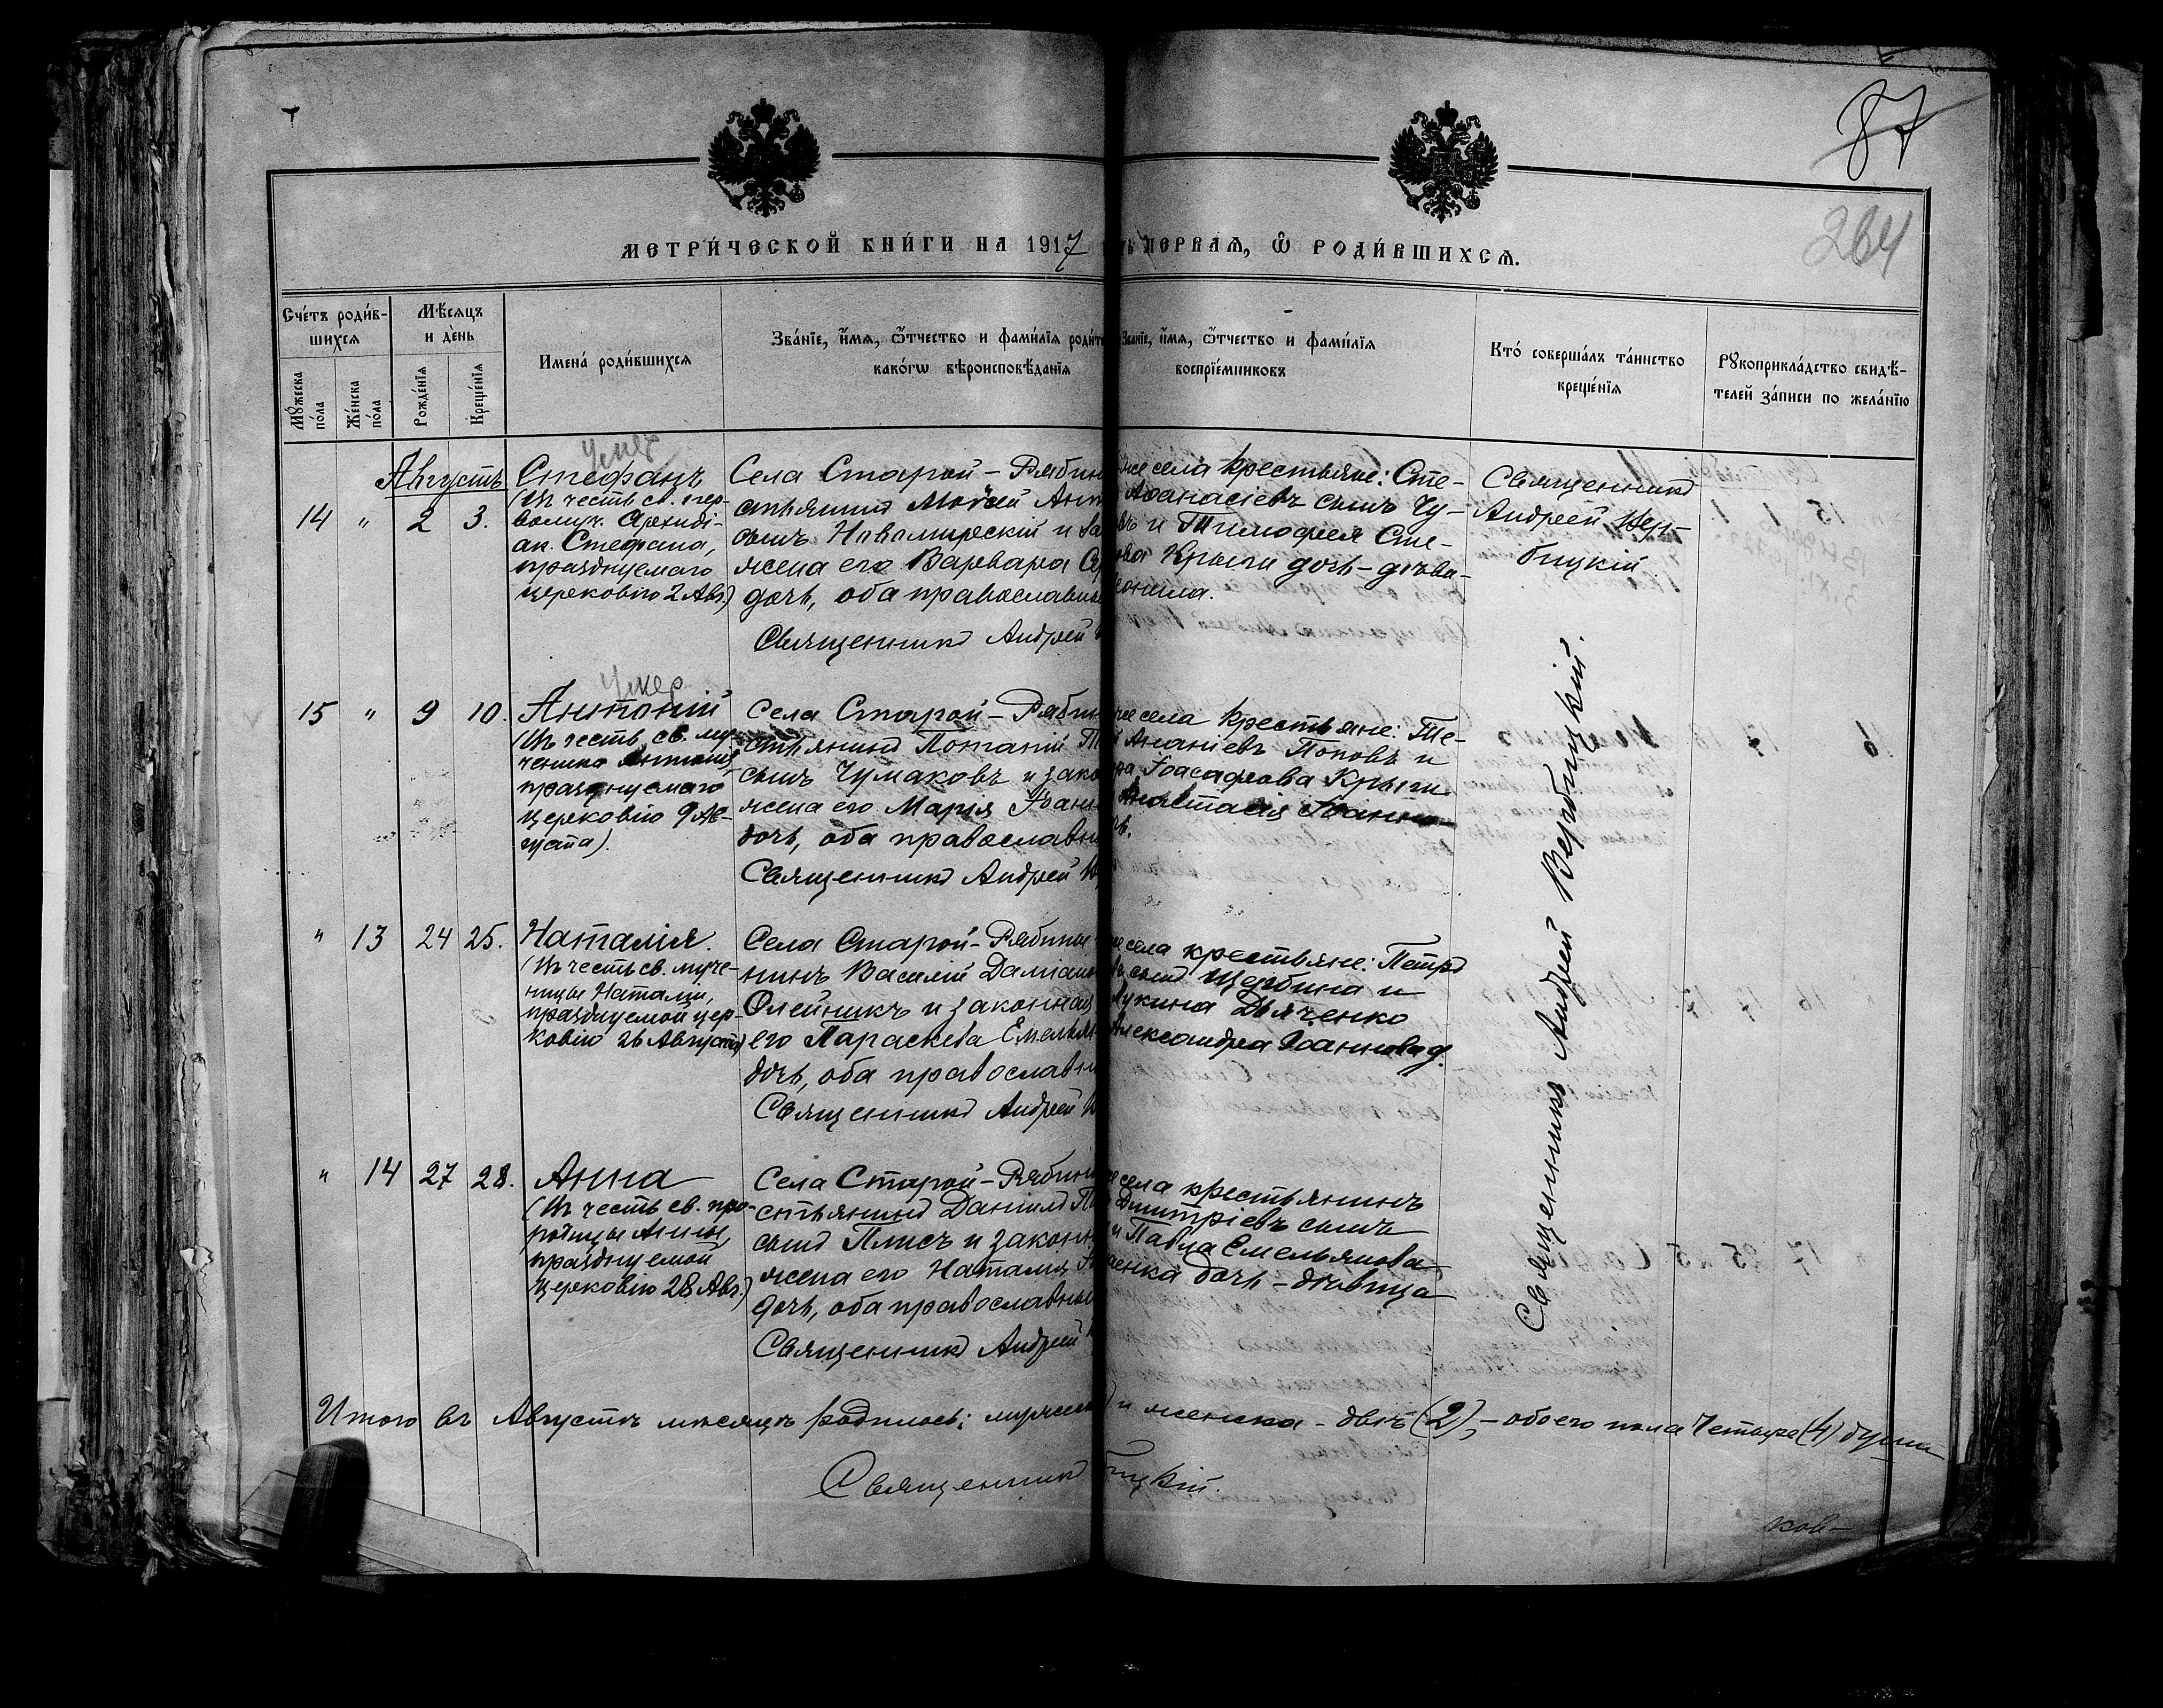 87
264
МЕТРИ́ЧЕСКОЙ КНИ́ГИ НА 1917
ПЕРВАЯ, Ѿ РОДИ́ВШИХСЯ.
Сче́тъ роди́в-
шихся
Мѣ́сяцъ
и де́нь
Имена́ роди́вшихся
Зва́нїе, и́мя, ѻ҆́тчество и фами́лїя роди́те
како́гѡ вѣроисповѣ́данїя
Зва́нїе, и́мя, ѻ҆́тчество и фами́лїя
воспрїе́мниковъ
Кто́ соверша́лъ та́инство
креще́нїя
Рꙋкоприкла́дство свидѣ́-
телей за́писи по жела́нїю
Мꙋ́жеска
по́ла
Же́нска
по́ла
Рожде́нїя
Креще́нїя
умер
Августъ
14 " 2 3.
Стефанъ
(Въ честь св. пер-
вомуч. Архиді-
ак. Стефана,
празднуемаго
церковію 2 Авг.)
Села Старой-Рябин
стьянинъ Моѵсей Ант
сынъ Новомирескій и за
жена его Варвара
дочь, оба православны
Священникъ Андрей
же села крестьяне: Сте-
Аѳанасіевъ сынъ Чу-
въ и Тимоѳея Сте-
ова Крыги дочь-дѣви-
Священникъ
Андрей Вер-
бицкій
умер
15 " 9 10.
Антоній
(Въ честь св. му-
ченика Антонія,
празднуемаго
церковію 9 Ав-
густа).
Села Старой-Рябин
стьянинъ Потапій
сынъ Чумаковъ и зако
жена его Марія Іоан
дочь, оба православн
Священникъ Андрей В
же села крестьяне: Те-
Ананіевъ Поповъ и
ра Іоасафова Крыги
Анастасія Іоанно
" 13 24 25.
Наталія.
(Въ честь св. муче-
ницы Наталіи,
празднуемой цер-
ковію 26 Августа)
Села Старой-Рябины
нинъ Василій Даміано
Олейникъ и законная
его Параскева Емельян
дочь, оба православн
Священникъ Андрей В
же села крестьяне: Петръ
въ сынъ Щербина и
Лукина Дьяченко
Александра Іоаннова д.
" 14 27 28.
Анна
(Въ честь св. про-
рочицы Анны,
празднуемой
церковію 28 Авг.)
Села Старой-Рябин
стьянинъ Даніилъ
сынъ Плисъ и законн
жена его Наталія
дочь, оба православны
Священникъ Андрей
села крестьянинъ
Димитріевъ сынъ
и Павла Емельянова
енка дочь-дѣвица
Священникъ Андрей Вербицкій.
Итого въ Августѣ мѣсяцѣ родилось: мужеск и женска - двѣ (2), - обоего пола четыре (4) души
Священник бицкій.